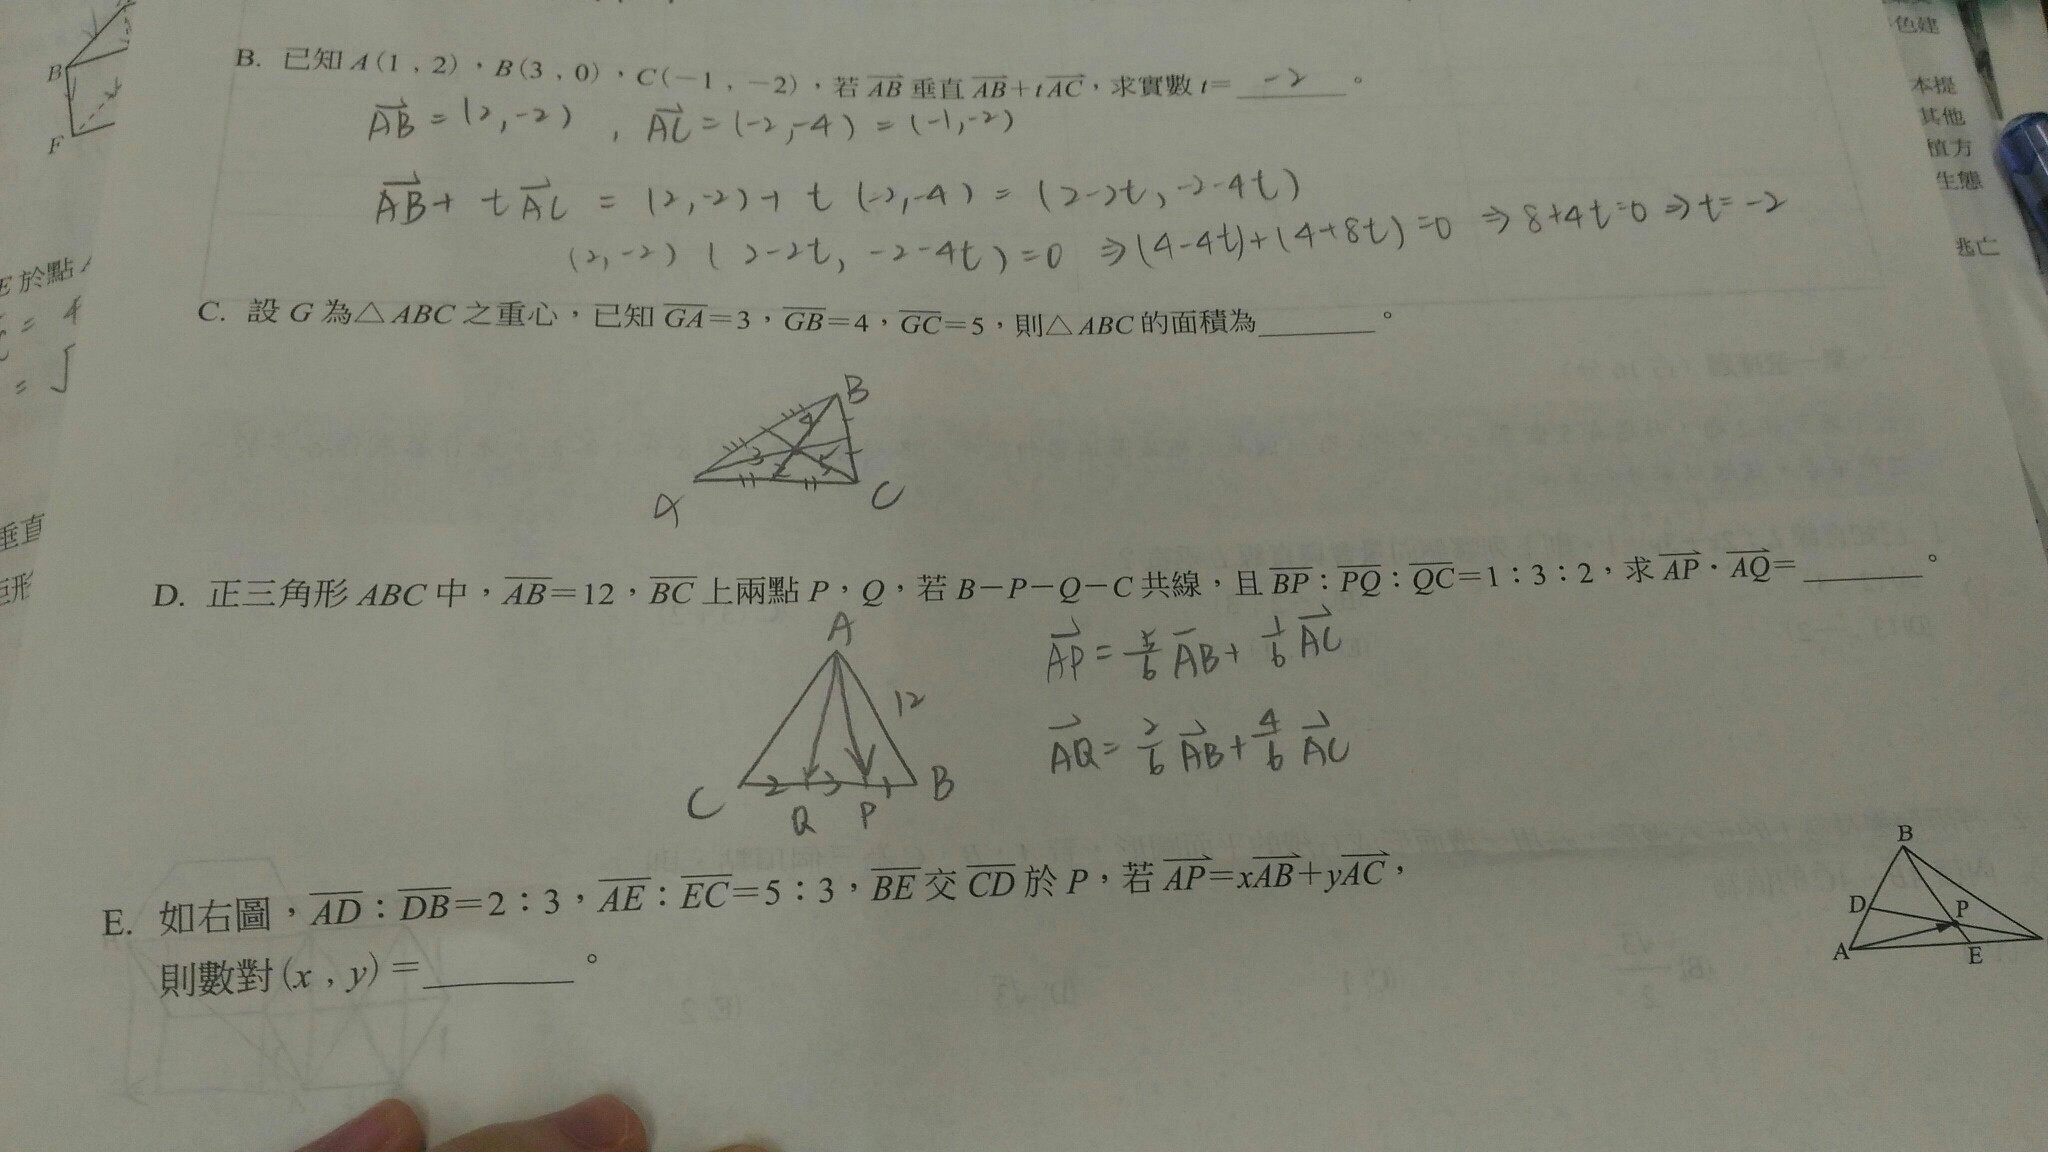 B. 已知 A(1 , 2),B(3 , 0),C(−1 , −2),若 AB 垂直 AB+tAC,求實數 t= −2 。
AB = (2,−2) , AC = (−2,−4) = (−1,−2)
AB + tAC = (2,−2) + t(−2,−4) = (2−2t, −2−4t)
(2,−2) (2−2t, −2−4t) = 0 ⇒ (4−4t)+(4+8t) = 0 ⇒ 8+4t=0 ⇒ t=−2
C. 設 G 為△ABC 之重心,已知 GA=3,GB=4,GC=5,則△ABC 的面積為 。
B
4
3 2 5
A C
D. 正三角形 ABC 中,AB=12,BC 上兩點 P,Q,若 B−P−Q−C 共線,且 BP:PQ:QC=1:3:2,求 AP · AQ= 。
A
12
C 2 3 1 B
Q P
AP = 5/6 AB + 1/6 AC
AQ = 2/6 AB + 4/6 AC
E. 如右圖,AD:DB=2:3,AE:EC=5:3,BE 交 CD 於 P,若 AP=xAB+yAC,
則數對 (x , y)= 。
B
D P
A E
B
F
E 於點
垂直
色建
本提
其他
植方
生態
逃亡